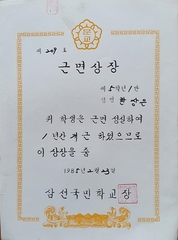 제 209 호
근면상장
제 5 학년 1 반
성명
위 학생은 근면 성실하여
1 년간 개근 하였으므로
이 상장을 줌
1985. 2. 23 일
삼선국민학교장